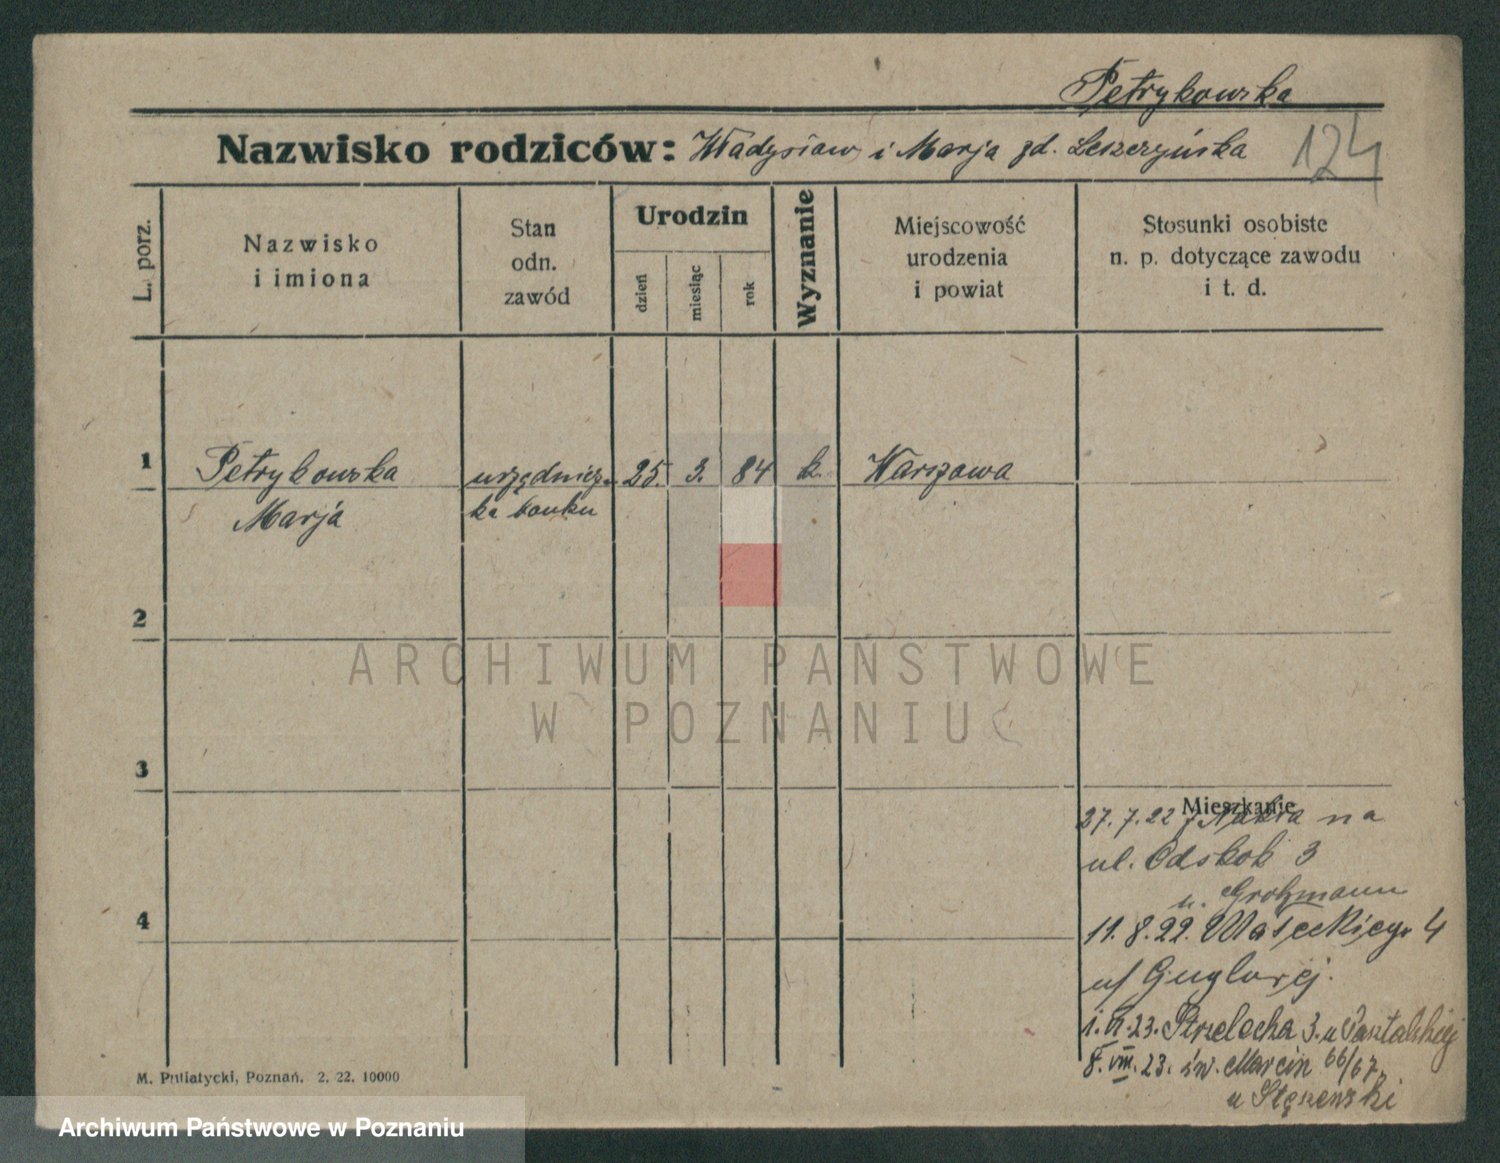 Petrykowska
Nazwisko rodziców: Władysław i Marja zd. Leszczyńska 124
L. porz.
Nazwisko
i imiona
Stan
odn.
zawód
Urodzin
dzień
miesiąc
rok
Wyznanie
Miejscowość
urodzenia
i powiat
Stosunki osobiste
n. p. dotyczące zawodu
i t. d.
1 Petrykowska urzędnicz- 25. 3. 84 k. Warszawa
Marja ka banku
2
ARCHIWUM PAŃSTWOWE
W POZNANIU
3
Mieszkanie
27.7.22 na
ul. Odskok 3
u. Grohmann
4
11.8.22. 4
u/
1. 23. Strzelecka 3. u
8. VIII. 23. św. Marcin 66/67,
u Stęszewski
M. Putiatycki, Poznań. 2. 22. 10000
Archiwum Państwowe w Poznaniu